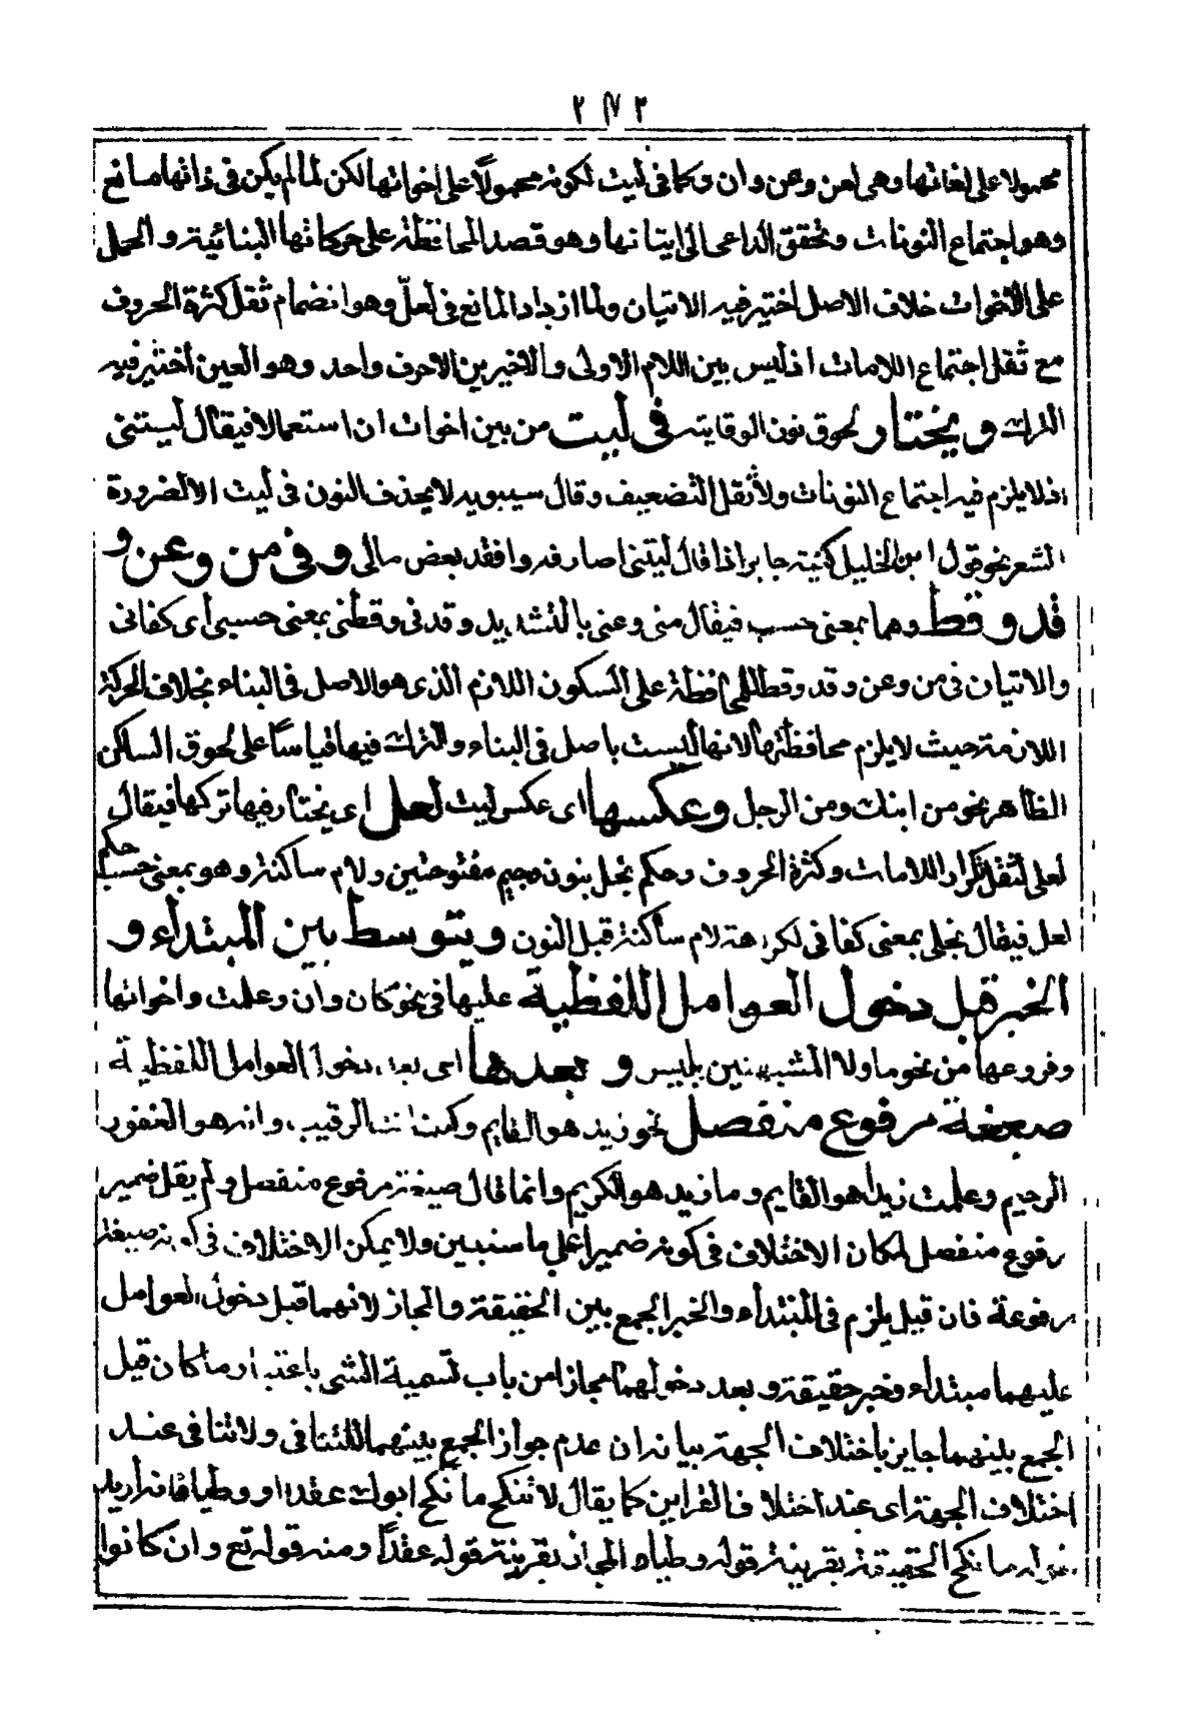 ٢٧٢
محمولا على لغاتها وهى لعن وعن وان وكما فى ليت لكونه محمولاً على اخواتها لكن لما لم يكن فى ذاتها مانع
وهو اجتماع النونات وتحقق الداعى الى ايتانها وهو قصد المحافظة على حركاتها البنائية والحمل
على الاخوات خلاف الاصل اختير فيه الاتيان ولما ازداد المانع فى لعلّ وهو انضمام ثقل كثرة الحروف
مع ثقل اجتماع اللامات اذ ليس بين اللام الاولى والاخيرين الاحرف واحد وهو العين اختير فيه
الترك ويختار لحوق نون الوقاية فى ليت من بين اخوات ان استعمالا فيقال ليتنى
اذ لا يلزم فيه اجتماع النونات ولا ثقل التضعيف وقال سيبويه لا يحذف النون فى ليت الا لضرورة
الشعر نحو قول ابن الخليل كمنية جابر اذا قال ليتنى اصادفه وافقد بعض مالى وفى من وعن و
قد وقط وهما بمعنى حسب فيقال منى وعنى بالتشديد وقدنى وقطنى بمعنى حسبى أى كفانى
والاتيان فى من وعن وقد وقط للمحافظة على السكون اللازم الذى هو الاصل فى البناء بخلاف الحركة
اللازمة حيث لا يلزم محافظتها لانها ليست باصل فى البناء والترك فيها قياسًا على لحوق الساكن
الظاهر نحو من ابنك ومن الرجل وعكسها اى عكس ليت لعل اى يختار فيها تركها فيقال
لعلى لثقل تكرار اللامات وكثرة الحروف وحكم بجل بنون وجيم مفتوحتين ولام ساكنة وهو بمعنى حسب حكم
لعل فيقال بجلى بمعنى كفانى لكراهة لام ساكنة قبل النون ويتوسط بين المبتدأ و
الخبر قبل دخول العوامل اللفظية عليها فى نحو كان وان وعلمت واخواتها
وفروعها من نحو ما ولا المشبهتين بليس و بعدها اى بعد دخول العوامل اللفظية
صيغة مرفوع منفصل نحو زيد هو القايم وكنت انت الرقيب وانه هو الغفور
الرحيم وعلمت زيدا هو القايم وما زيد هو الكريم وانما قال صيغة مرفوع منفصل ولم يقل ضمير
رفوع منفصل لمكان الاختلاف فى كونه ضميرا على ما سنبين ولا يمكن الاختلاف فى كونه صيغة
رفوعة فان قيل يلزم فى المبتدأ والخبر الجمع بين الحقيقة والمجاز لانهما قبل دخول العوامل
عليهما مبتدأ وخبر حقيقة وبعد دخولهما مجازا من باب تسمية الشى باعتبار ما كان قيل
الجمع بينهما جايز باختلاف الجهة بيانه ان عدم جواز الجمع بينهما للتنافى ولا تنافى عند
اختلاف الجهة اى عند اختلاف القراين كما يقال لا تنكح ما نكح ابوك عقدا او وطيا فانه أريد
ما نكح الحقيقة بقرينة قوله وطيا والمجاز بقرينة قوله عقدًا ومنه قوله تع وان كانوا